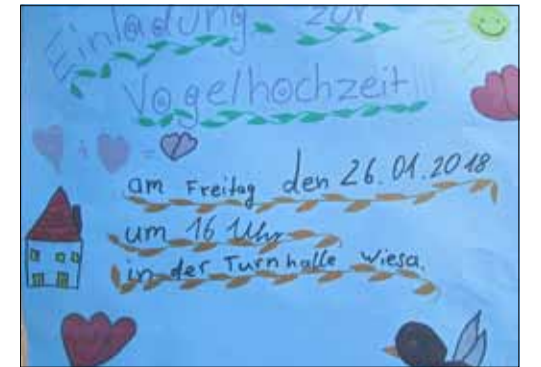 Einladung zur
Vogelhochzeit!!!
am Freitag den 26.01.2018
um 16 Uhr
in der Turnhalle Wiesa.